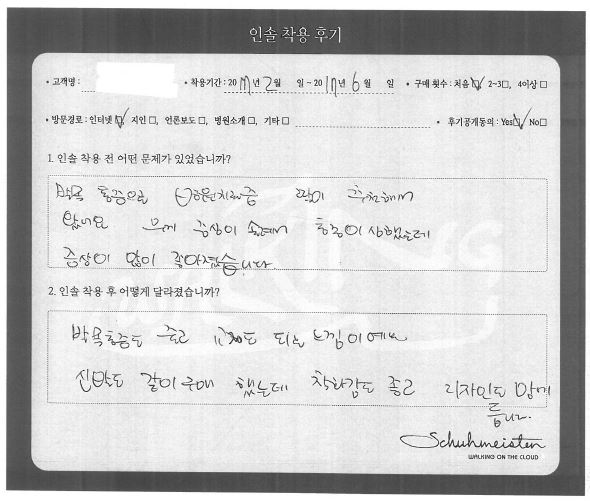 인솔 착용 후기
• 고객명 : • 착용기간 : 2017년 2월 일 ~ 2017년 6월 일 • 구매 횟수 : 처음☑ 2~3□, 4이상□
• 방문경로 : 인터넷☑ 지인□, 언론보도□, 병원소개□, 기타□ • 후기공개동의 : Yes☑ No□
1. 인솔 착용 전 어떤 문제가 있었습니까?
발목 통증으로 병원치료중 추천해서
왔어요 증상이 심해서 통증이 심했는데
증상이 많이 좋아졌습니다.
2. 인솔 착용 후 어떻게 달라졌습니까?
발목통증도 줄고 교정도 되는 느낌이에요
신발도 같이 구매 했는데 착화감도 좋고 디자인도 맘에
듭니다.
Schuhmeister
WALKING ON THE CLOUD